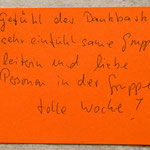 Gefühl der Dankbark
sehr einfühlsame Grupp
leiterin und liebe
Personen in der Gruppe
tolle Woche!